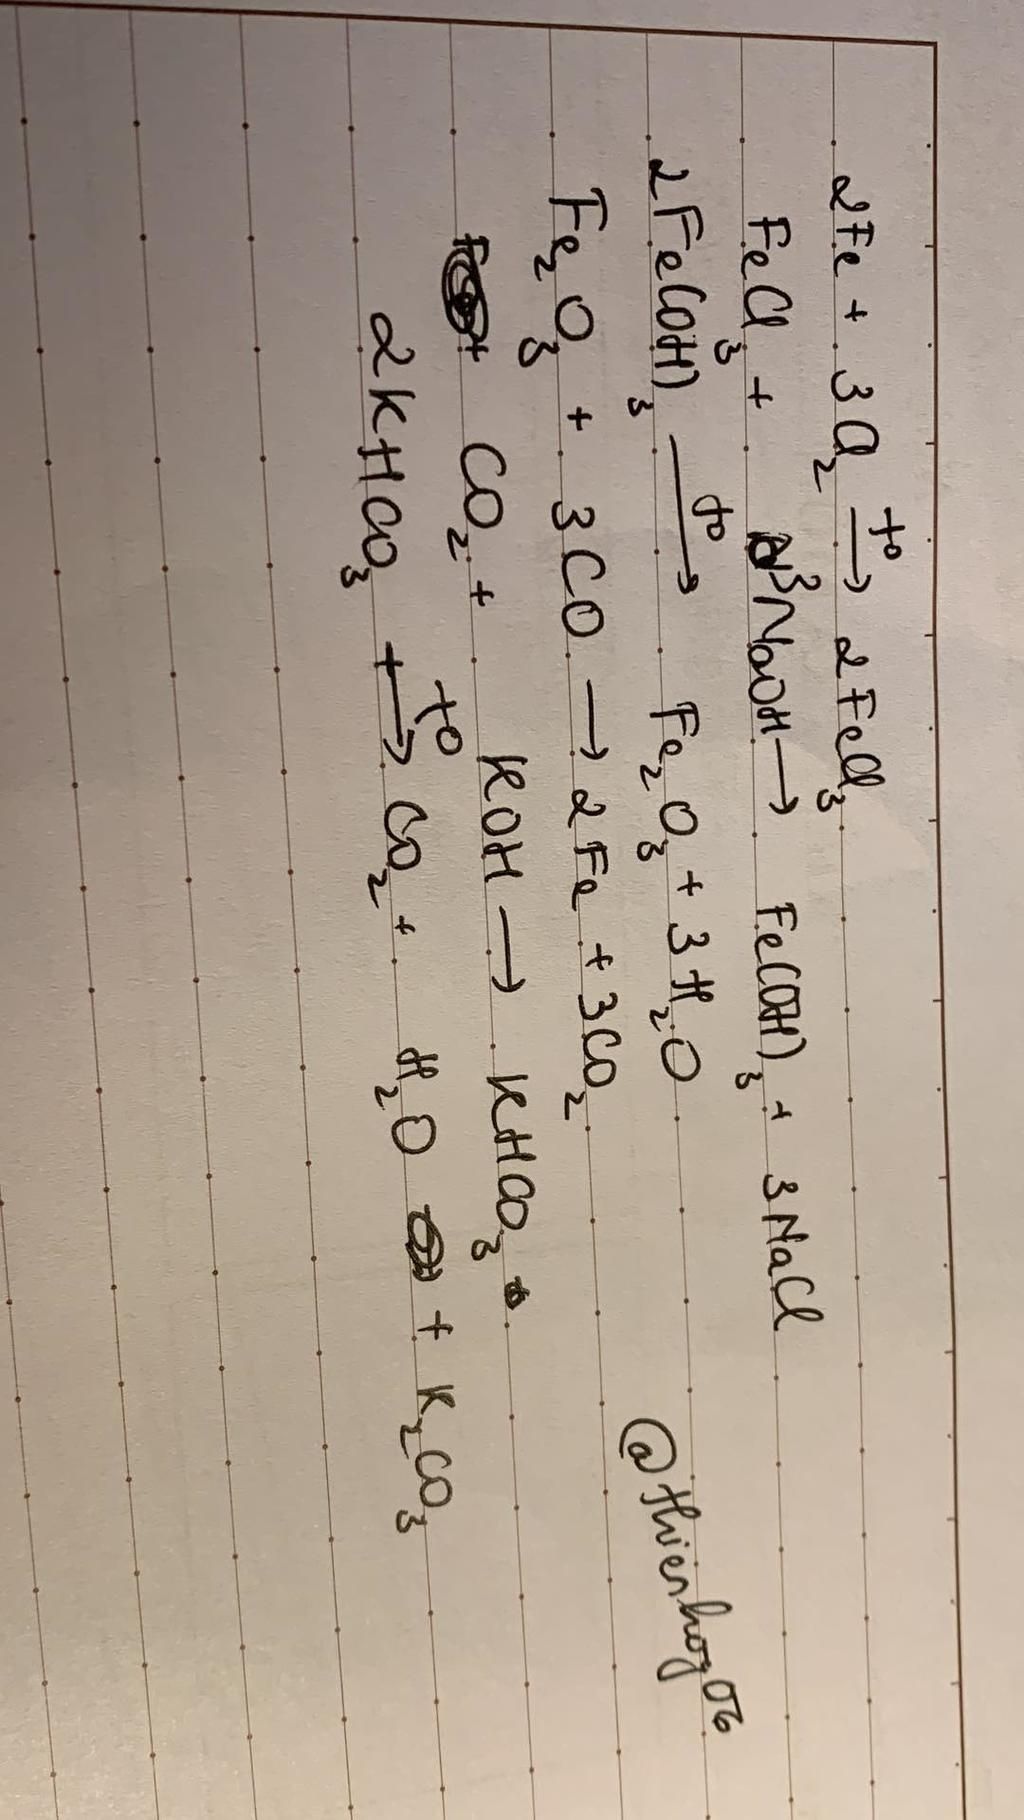 2Fe + 3Cl2 –t°→ 2FeCl3
FeCl3 + 3NaOH → Fe(OH)3 + 3NaCl
2Fe(OH)3 –t°→ Fe2O3 + 3H2O
Fe2O3 + 3CO → 2Fe + 3CO2
CO2 + KOH → KHCO3
2KHCO3 –t°→ CO2 + H2O + K2CO3